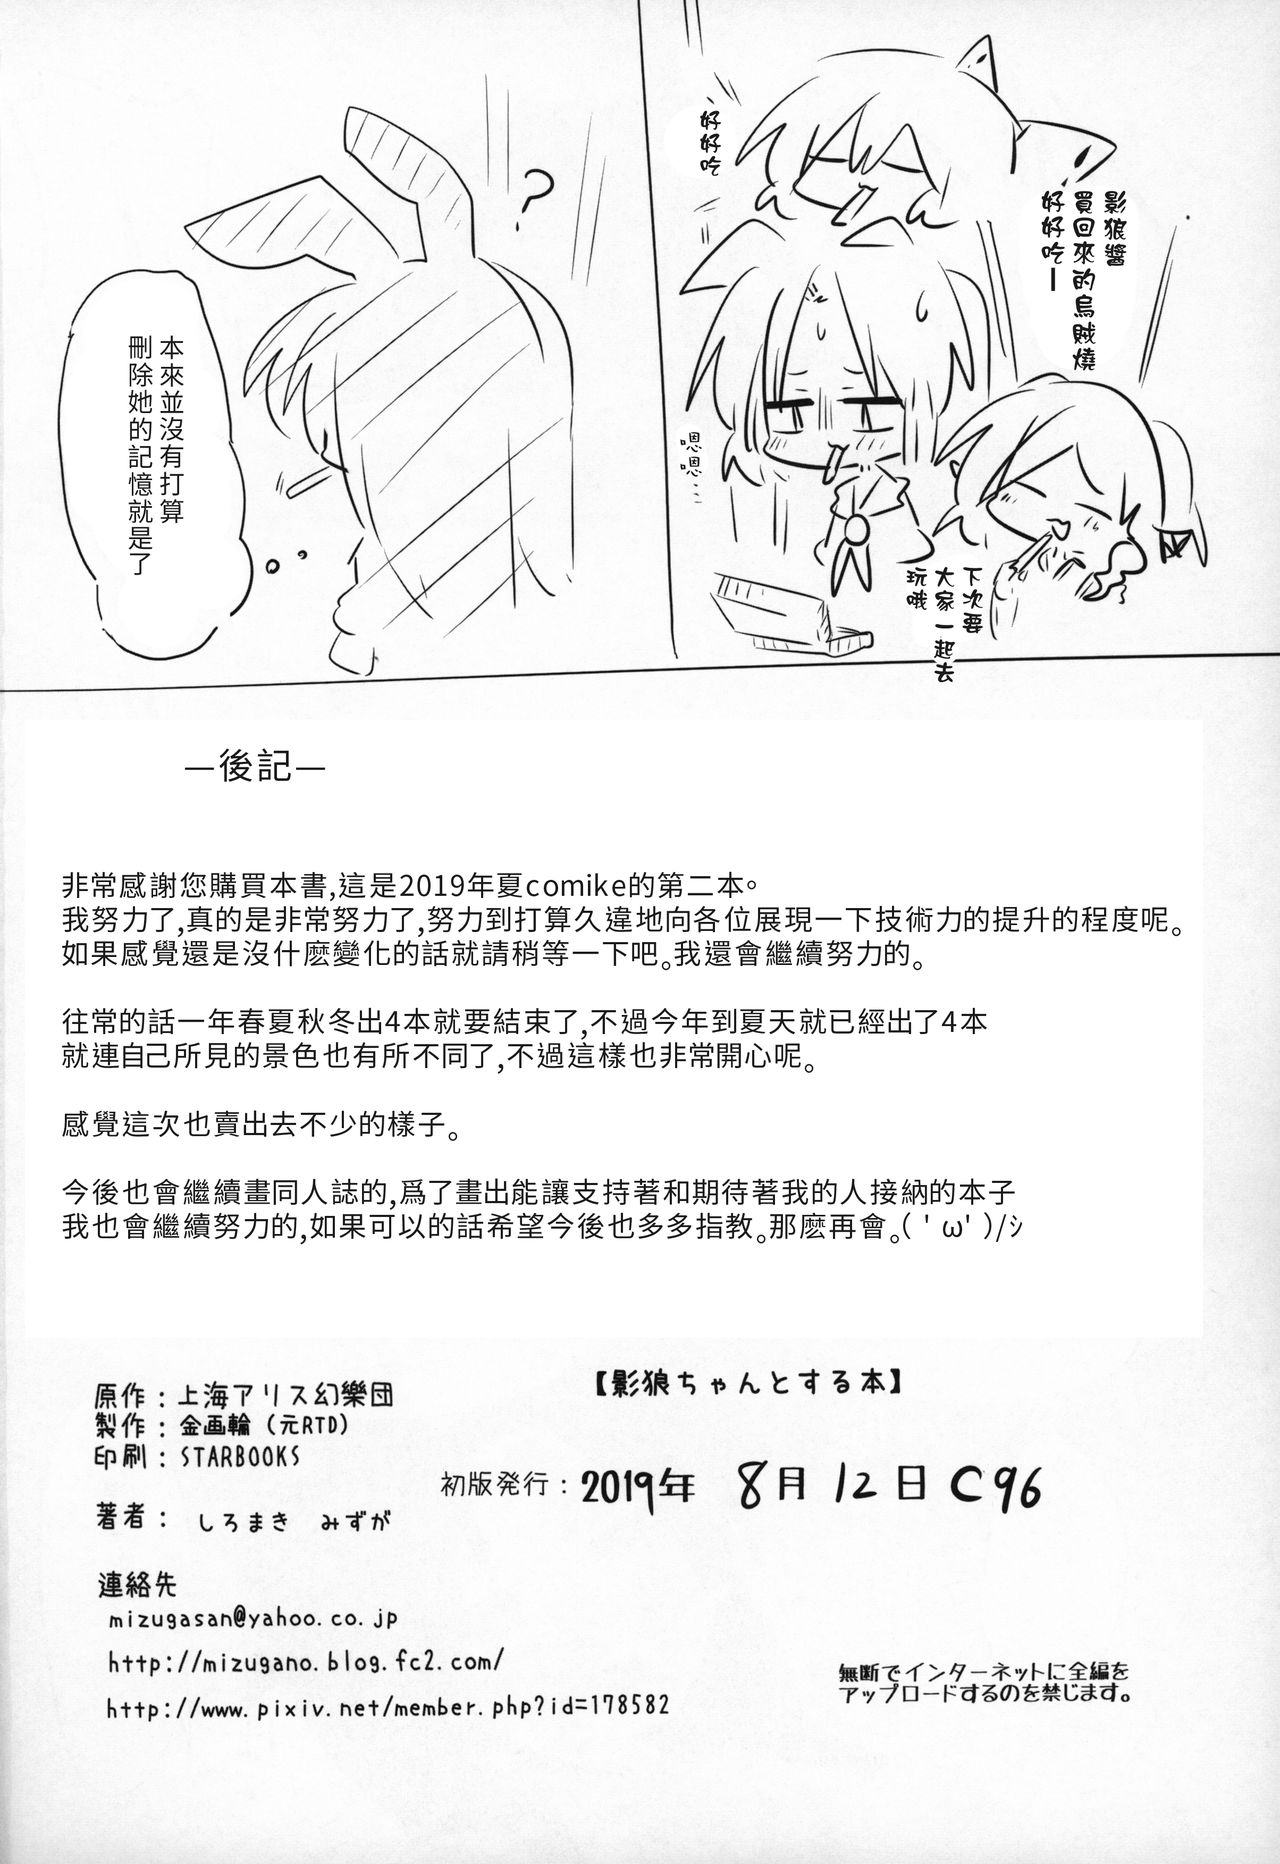 影狼醬
買回來的烏賊燒
好好吃ー
好好吃
嗯嗯…
下次要
大家一起去
玩哦
?
本來並沒有打算
刪除她的記憶就是了
—後記—
非常感謝您購買本書,這是2019年夏comike的第二本。
我努力了,真的是非常努力了,努力到打算久違地向各位展現一下技術力的提升的程度呢。
如果感覺還是沒什麽變化的話就請稍等一下吧。我還會繼續努力的。
往常的話一年春夏秋冬出4本就要結束了,不過今年到夏天就已經出了4本
就連自己所見的景色也有所不同了,不過這樣也非常開心呢。
感覺這次也賣出去不少的樣子。
今後也會繼續畫同人誌的,爲了畫出能讓支持著和期待著我的人接納的本子
我也會繼續努力的,如果可以的話希望今後也多多指教。那麽再會。( ' ω' )/ｼ
原作：上海アリス幻樂団
製作：金画輪（元RTD）
印刷：STARBOOKS
著者：しろまき みずが
【影狼ちゃんとする本】
初版発行：2019年 8月12日 C96
連絡先
mizugasan@yahoo.co.jp
http://mizugano.blog.fc2.com/
http://www.pixiv.net/member.php?id=178582
無断でインターネットに全編を
アップロードするのを禁じます。